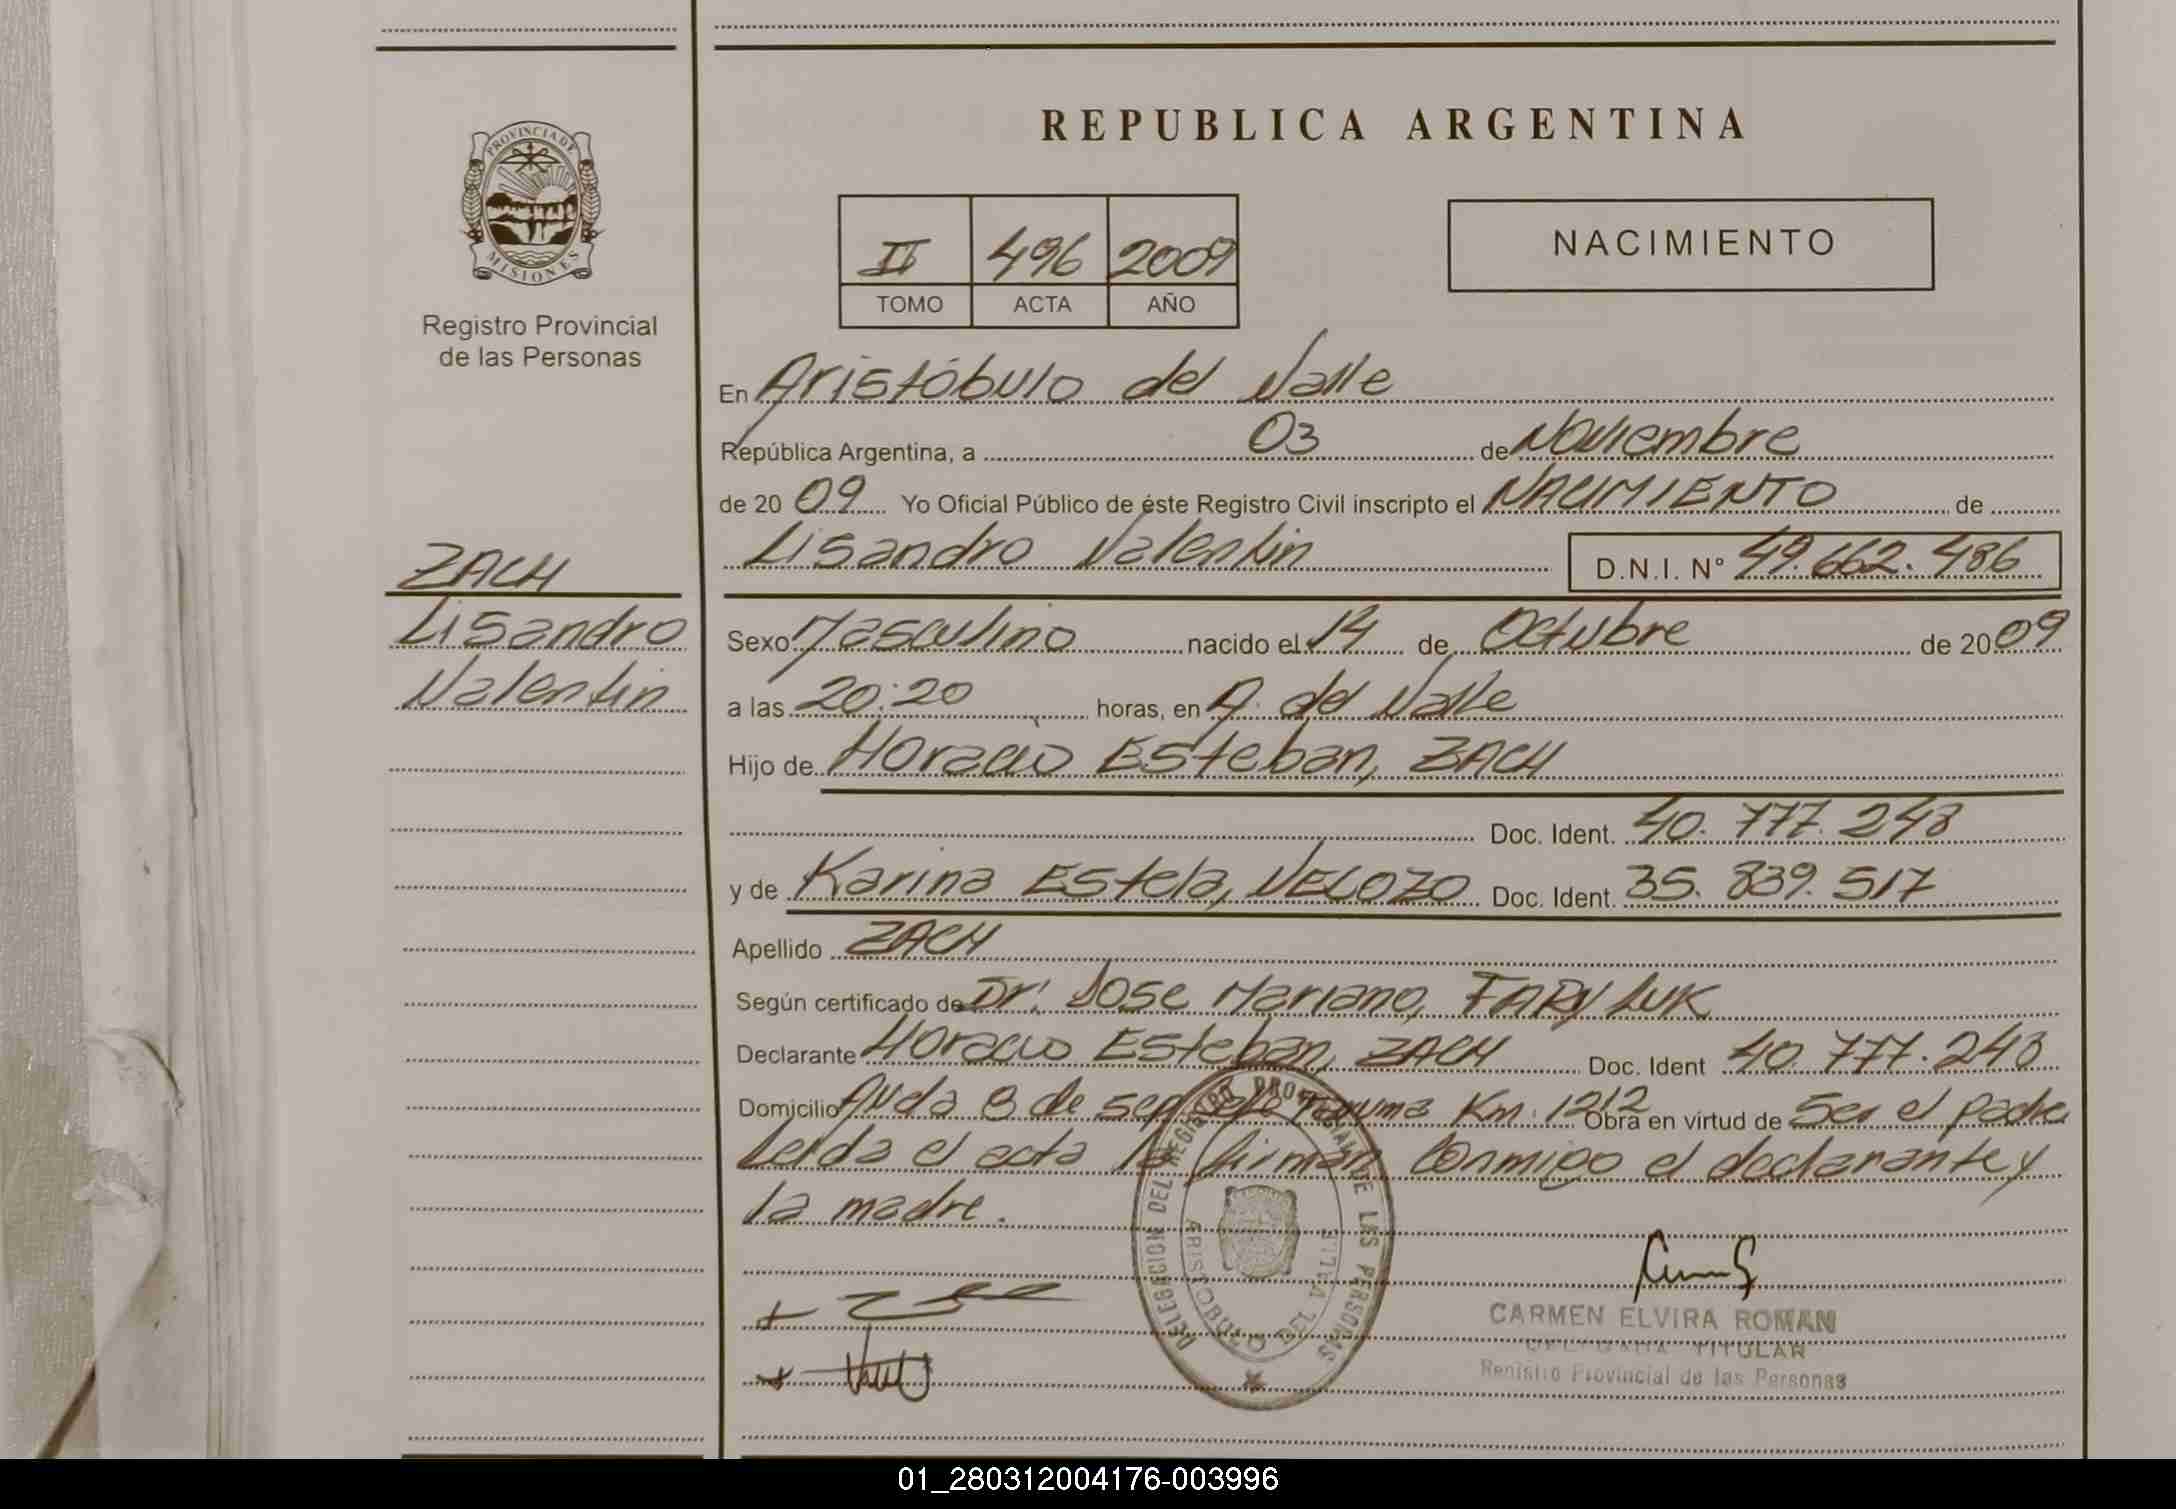 REPUBLICA ARGENTINA
PROVINCIA DE
MISIONES
Registro Provincial
de las Personas
II 496 2009
TOMO ACTA AÑO
NACIMIENTO
En Aristóbulo del Valle
República Argentina, a 03 de Noviembre
de 20 09 Yo Oficial Público de éste Registro Civil inscripto el NACIMIENTO de
Lisandro Valentin D.N.I. N° 49.662.486
ZACH
Lisandro
Valentin
Sexo Masculino nacido el 14 de Octubre de 20 09
a las 20:20 horas, en A. del Valle
Hijo de Horacio Esteban, ZACH
Doc. Ident. 40.777.248
y de Karina Estela, VELOZO Doc. Ident. 35.839.517
Apellido ZACH
Según certificado de Dr. Jose Mariano, FARYLUK
Declarante Horacio Esteban, ZACH Doc. Ident 40.777.248
Domicilio Avda 8 de Km. 1212 Obra en virtud de Ser el padre
Leida el acta la firman Conmigo el declarante y
la madre.
DELEGACION DEL REGISTRO PROVINCIAL DE LAS PERSONAS
ARISTOBULO DEL VALLE
CARMEN ELVIRA ROMAN
DELEGADA TITULAR
Registro Provincial de las Personas
01_280312004176-003996